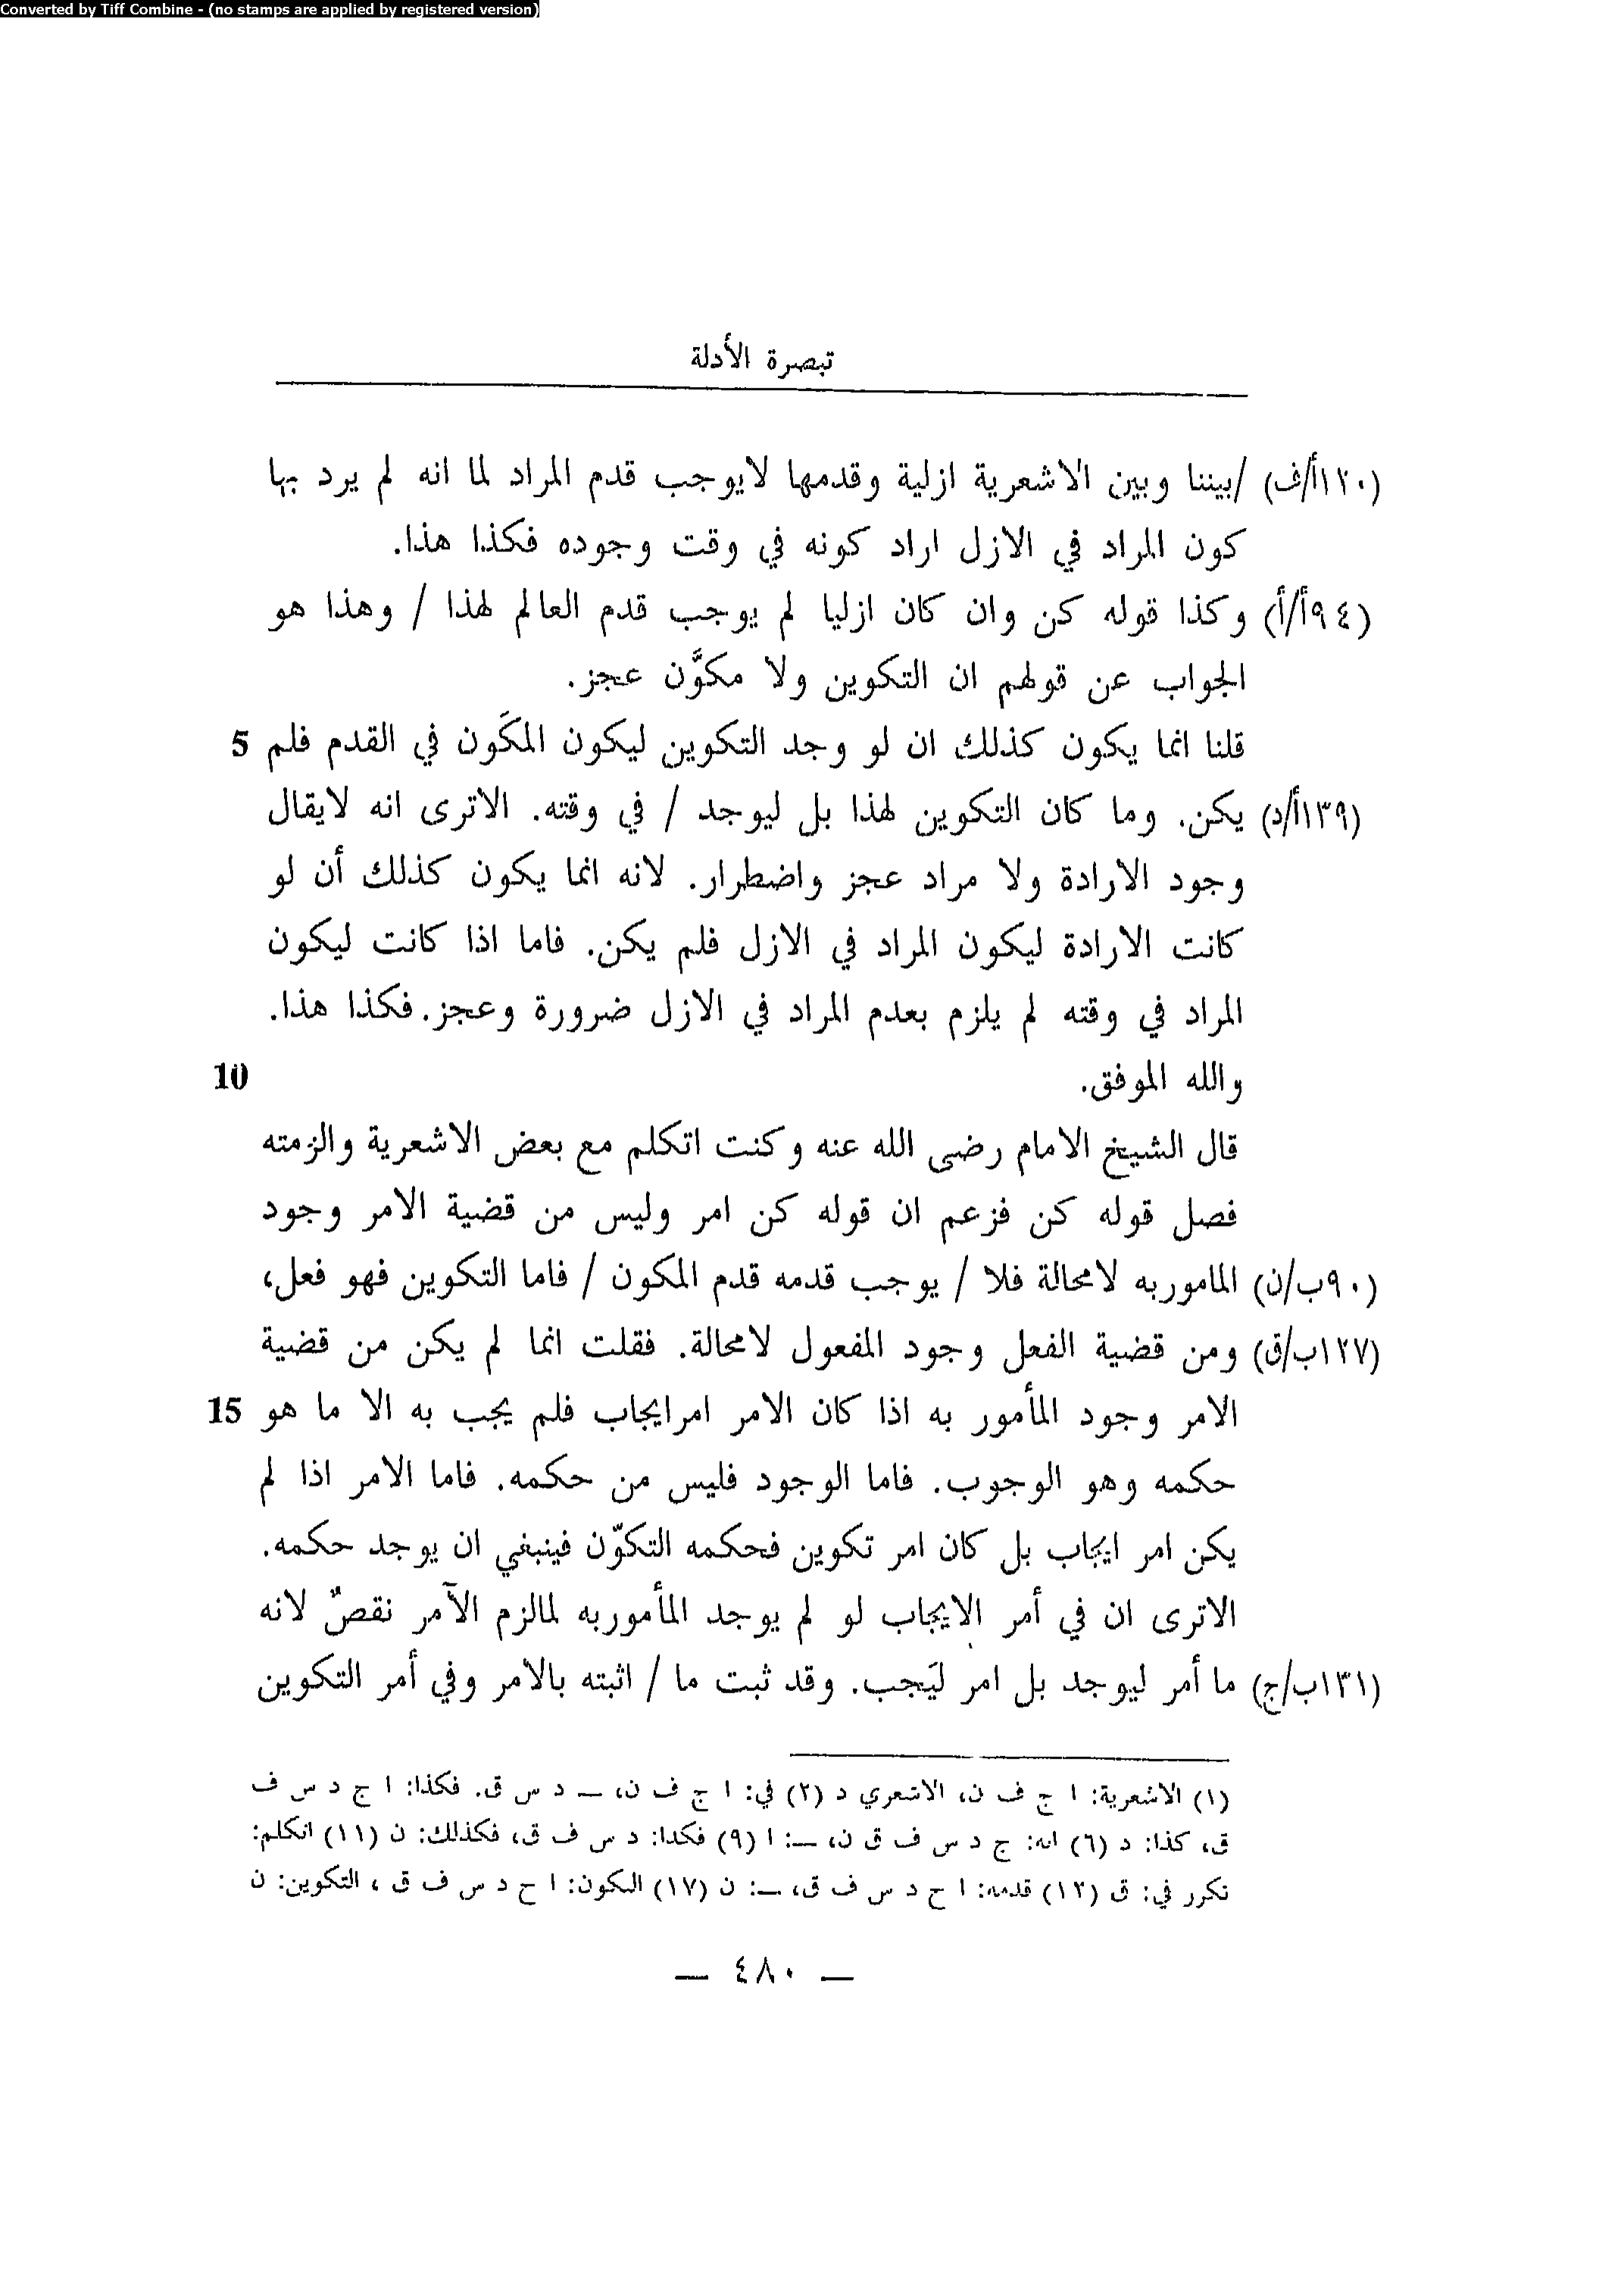 Converted by Tiff Combine - (no stamps are applied by registered version)
تبصرة الأدلة
(١٢٠أ/ف) /بيننا وبين الاشعرية ازلية وقدمها لايوجب قدم المراد لما انه لم يرد بها
كون المراد في الازل اراد كونه في وقت وجوده فكذا هذا.
(٩٤أ/أ) وكذا قوله كن وان كان ازليا لم يوجب قدم العالم لهذا / وهذا هو
الجواب عن قولهم ان التكوين ولا مكوَّن عجز.
قلنا انما يكون كذلك ان لو وجد التكوين ليكون المكَون في القدم فلم 5
(١٣٩أ/د) يكن. وما كان التكوين لهذا بل ليوجد / في وقته. الاترى انه لايقال
وجود الارادة ولا مراد عجز واضطرار. لانه انما يكون كذلك أن لو
كانت الارادة ليكون المراد في الازل فلم يكن. فاما اذا كانت ليكون
المراد في وقته لم يلزم بعدم المراد في الازل ضرورة وعجز. فكذا هذا.
والله الموفق. 10
قال الشيخ الامام رضى الله عنه وكنت اتكلم مع بعض الاشعرية والزمته
فصل قوله كن فزعم ان قوله كن امر وليس من قضية الامر وجود
(٩٠ب/ن) الماموربه لامحالة فلا / يوجب قدمه قدم المكون / فاما التكوين فهو فعل،
(١٢٧ب/ق) ومن قضية الفعل وجود المفعول لامحالة. فقلت انما لم يكن من قضية
الامر وجود المأمور به اذا كان الامر امرايجاب فلم يجب به الا ما هو 15
حكمه وهو الوجوب. فاما الوجود فليس من حكمه. فاما الامر اذا لم
يكن امر ايجاب بل كان امر تكوين فحكمه التكوّن فينبغي ان يوجد حكمه.
الاترى ان في أمر الايجاب لو لم يوجد المأموربه لمالزم الآمر نقصٌ لانه
(١٣١ب/ج) ما أمر ليوجد بل امر ليَجب. وقد ثبت ما / اثبته بالامر وفي أمر التكوين
(١) الاشعرية: ا ج ف ن، الاشعري د (٢) في: ا ج ف ن، ـ د س ق. فكذا: ا ج د س ف
ق، كذا: د (٦) انه: ج د س ف ق ن، ـ: ا (٩) فكذا: د س ف ق، فكذلك: ن (١١) اتكلم:
تكرر في: ق (١٣) قدمه: ا ح د س ف ق، ـ: ن (١٧) التكون: ا ح د س ف ق ، التكوين: ن
— ٤٨٠ —